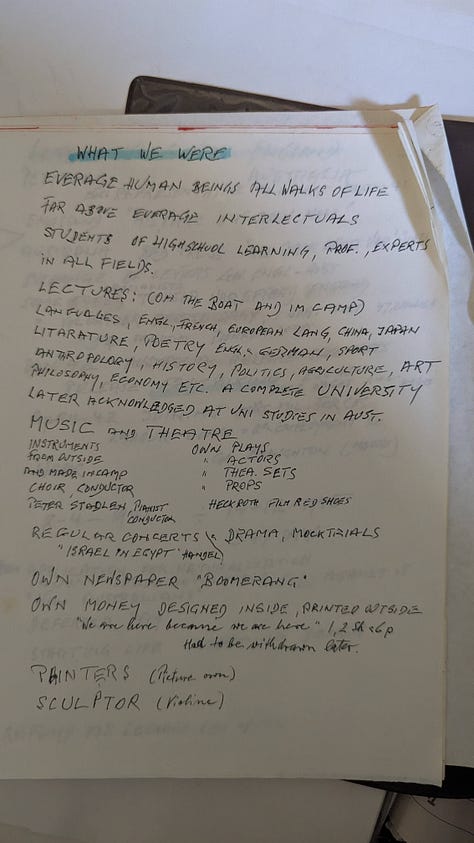 WHAT WE WERE
EVERAGE HUMAN BEINGS ALL WALKS OF LIFE
FAR ABOVE EVERAGE INTERLECTUALS
STUDENTS OF HIGHSCHOOL LEARNING, PROF., EXPERTS
IN ALL FIELDS.
LECTURES: (ON THE BOAT AND IM CAMP)
LANGUAGES, ENGL, FRENCH, EUROPEAN LANG, CHINA, JAPAN
LITARATURE, POETRY ENGL. GERMAN, SPORT
ANTHROPOLOGY, HISTORY, POLITICS, AGRICULTURE, ART
PHILOSOPHY, ECONOMY ETC. A COMPLETE UNIVERSITY
LATER ACKNOWLEDGED AT UNI STUDIES IN AUST.
MUSIC AND THEATRE
INSTRUMENTS OWN PLAYS
FROM OUTSIDE " ACTORS
AND MADE IN CAMP " THEA. SETS
CHOIR, CONDUCTOR " PROPS
PETER STADLEN, PIANIST HECKROTH FILM RED SHOES
CONDUCTOR
REGULAR CONCERTS & DRAMA, MOCKTRIALS
"ISRAEL IN EGYPT" HANDEL)
OWN NEWSPAPER "BOOMERANG"
OWN MONEY DESIGNED INSIDE, PRINTED OUTSIDE
"We are here because we are here" 1, 2 Sh & 6p
Had to be withdrawn later.
PAINTERS (Picture own)
SCULPTOR (Violine)